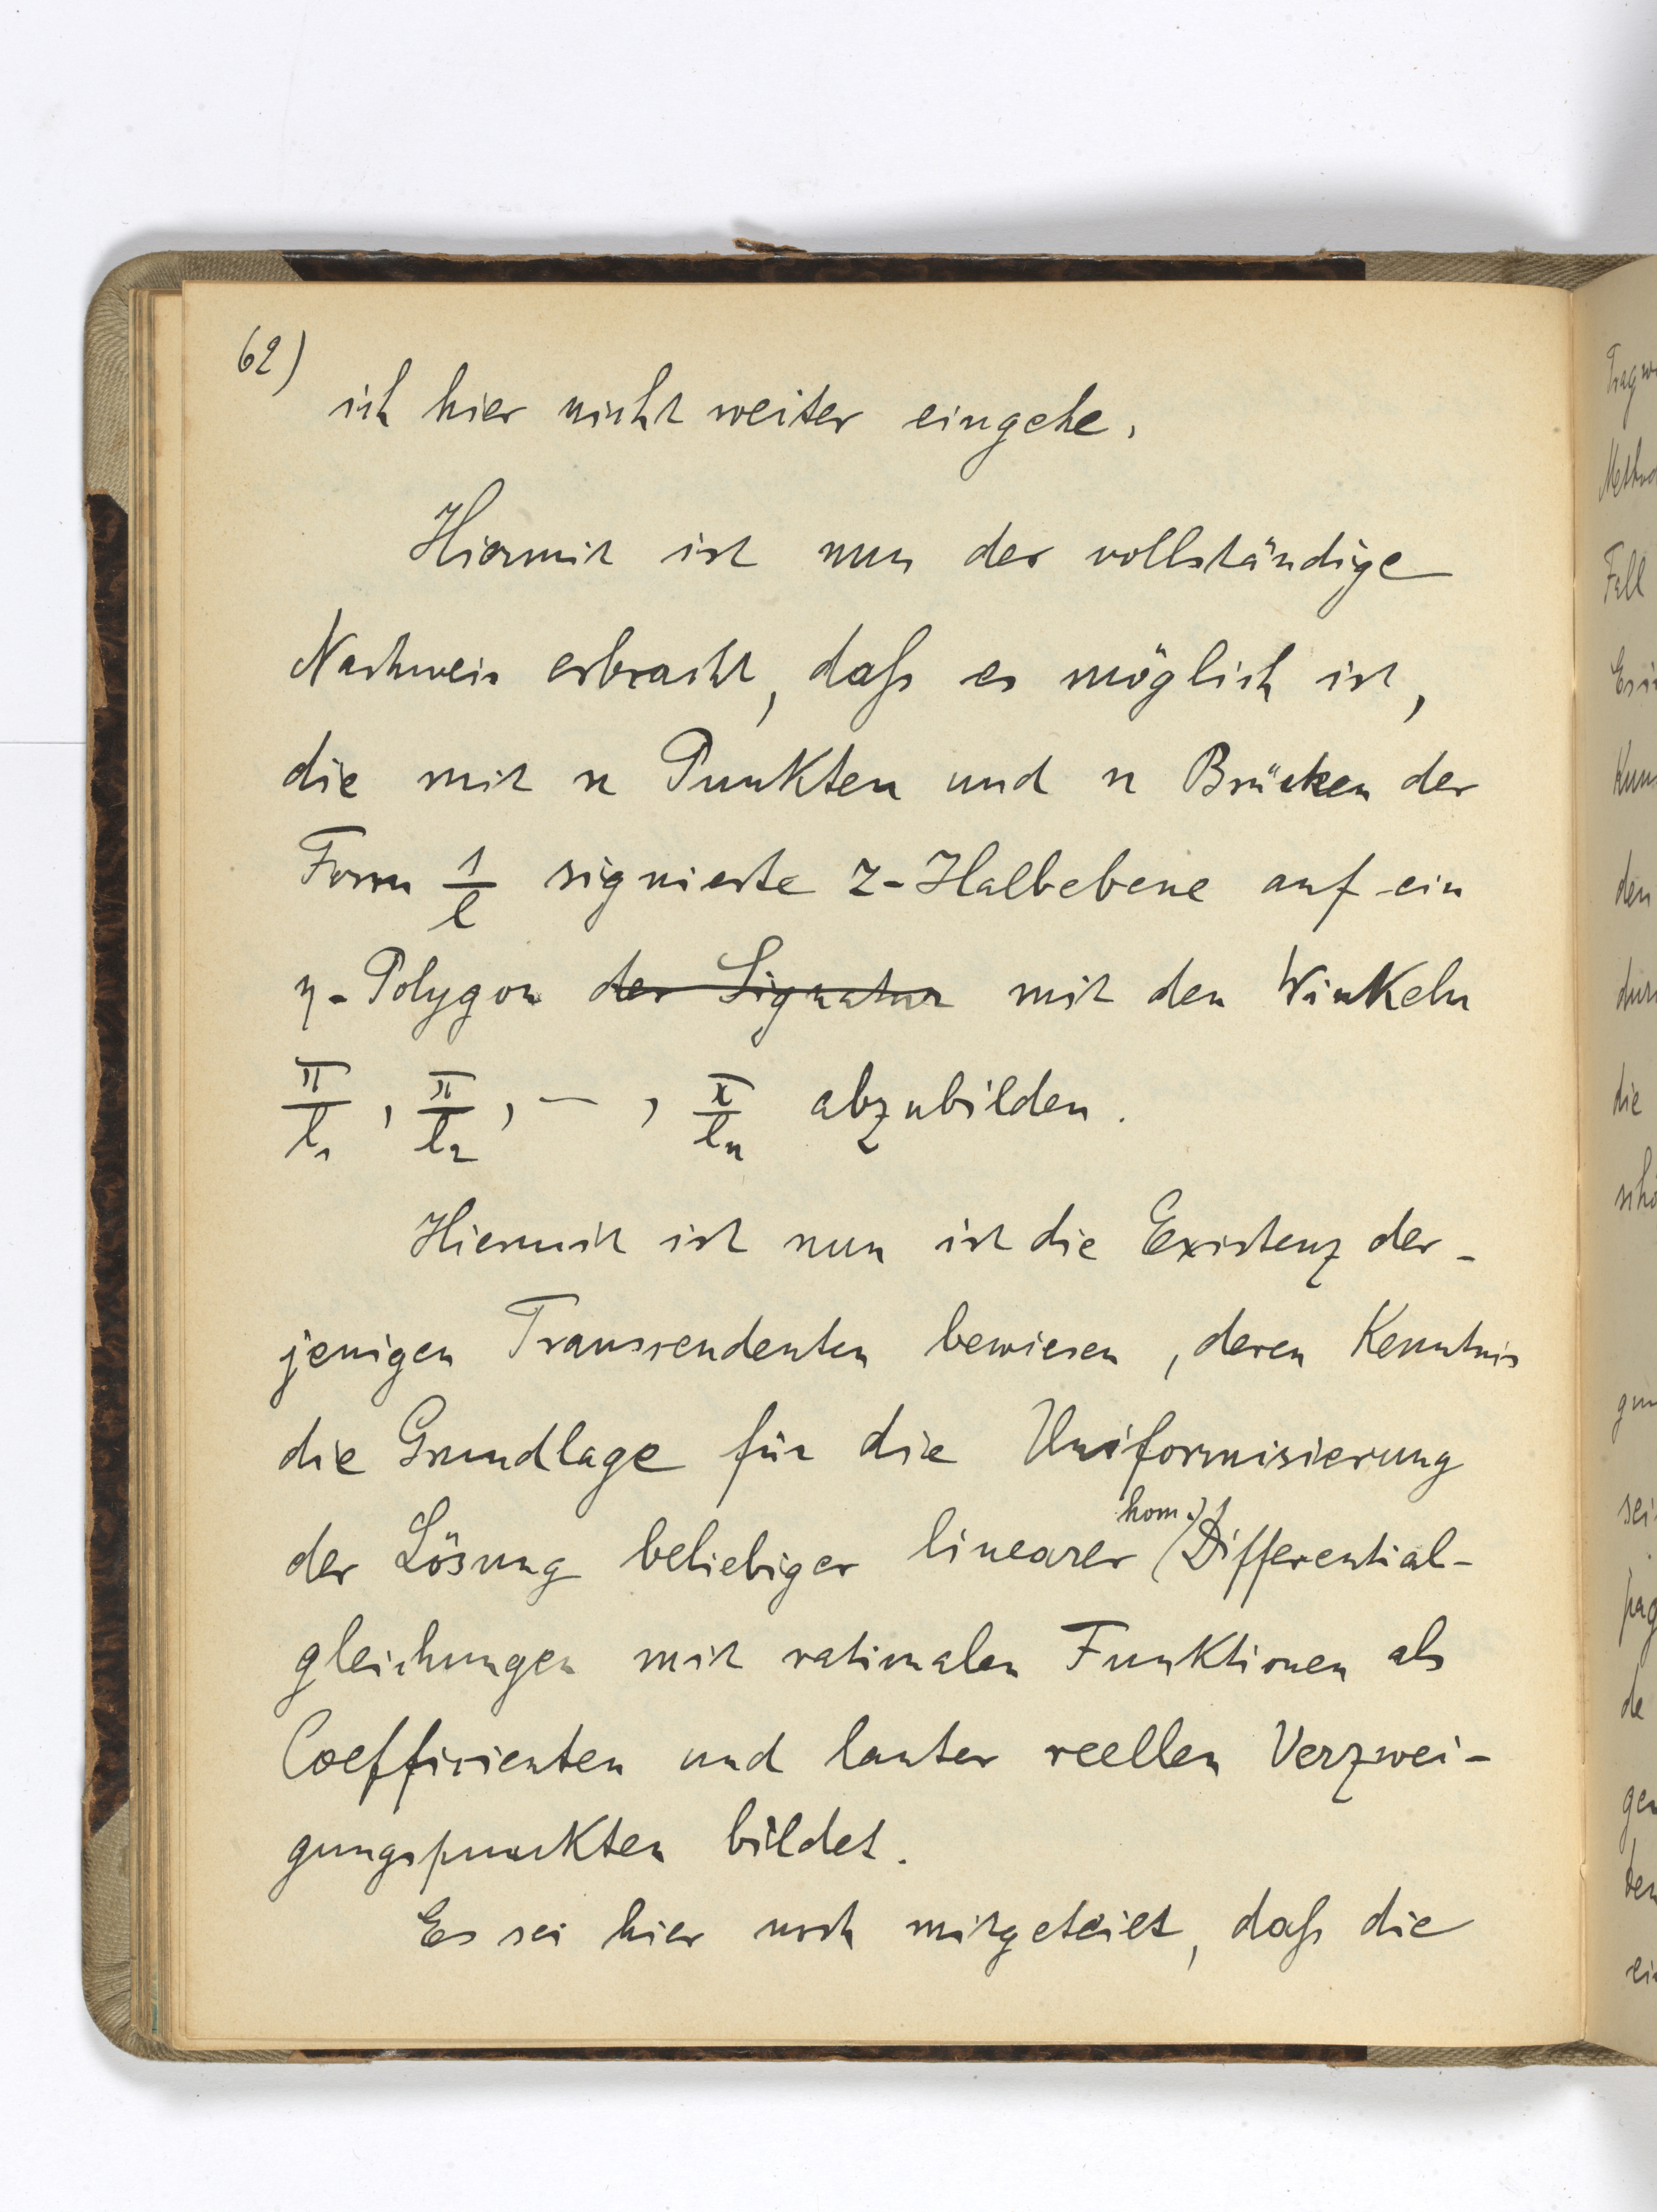 62)
ich hier nicht weiter eingehe.
Hiermit ist nun der vollständige
Nachweis erbracht, daß es möglich ist,
die mit n Punkten und n Brücken der
Form 1/l signierte z-Halbebene auf ein
η-Polygon der Signatur mit den Winkeln
π/l₁, π/l₂, — , π/lₙ abzubilden.
Hiermit ist nun ist die Existenz der-
jenigen Transcendenten bewiesen, deren Kenntnis
die Grundlage für die Uniformisierung
der Lösung beliebiger linearer (hom.) Differential-
gleichungen mit rationalen Funktionen als
Coefficienten und lauter reellen Verzwei-
gungspunkten bildet.
Es sei hier noch mitgeteilt, daß die
Fall
den
die
de